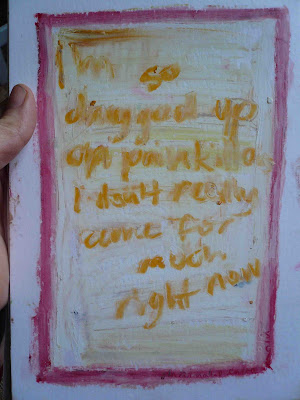 I'm so
drugged up
on painkillers
I don't really
care for
much
right now